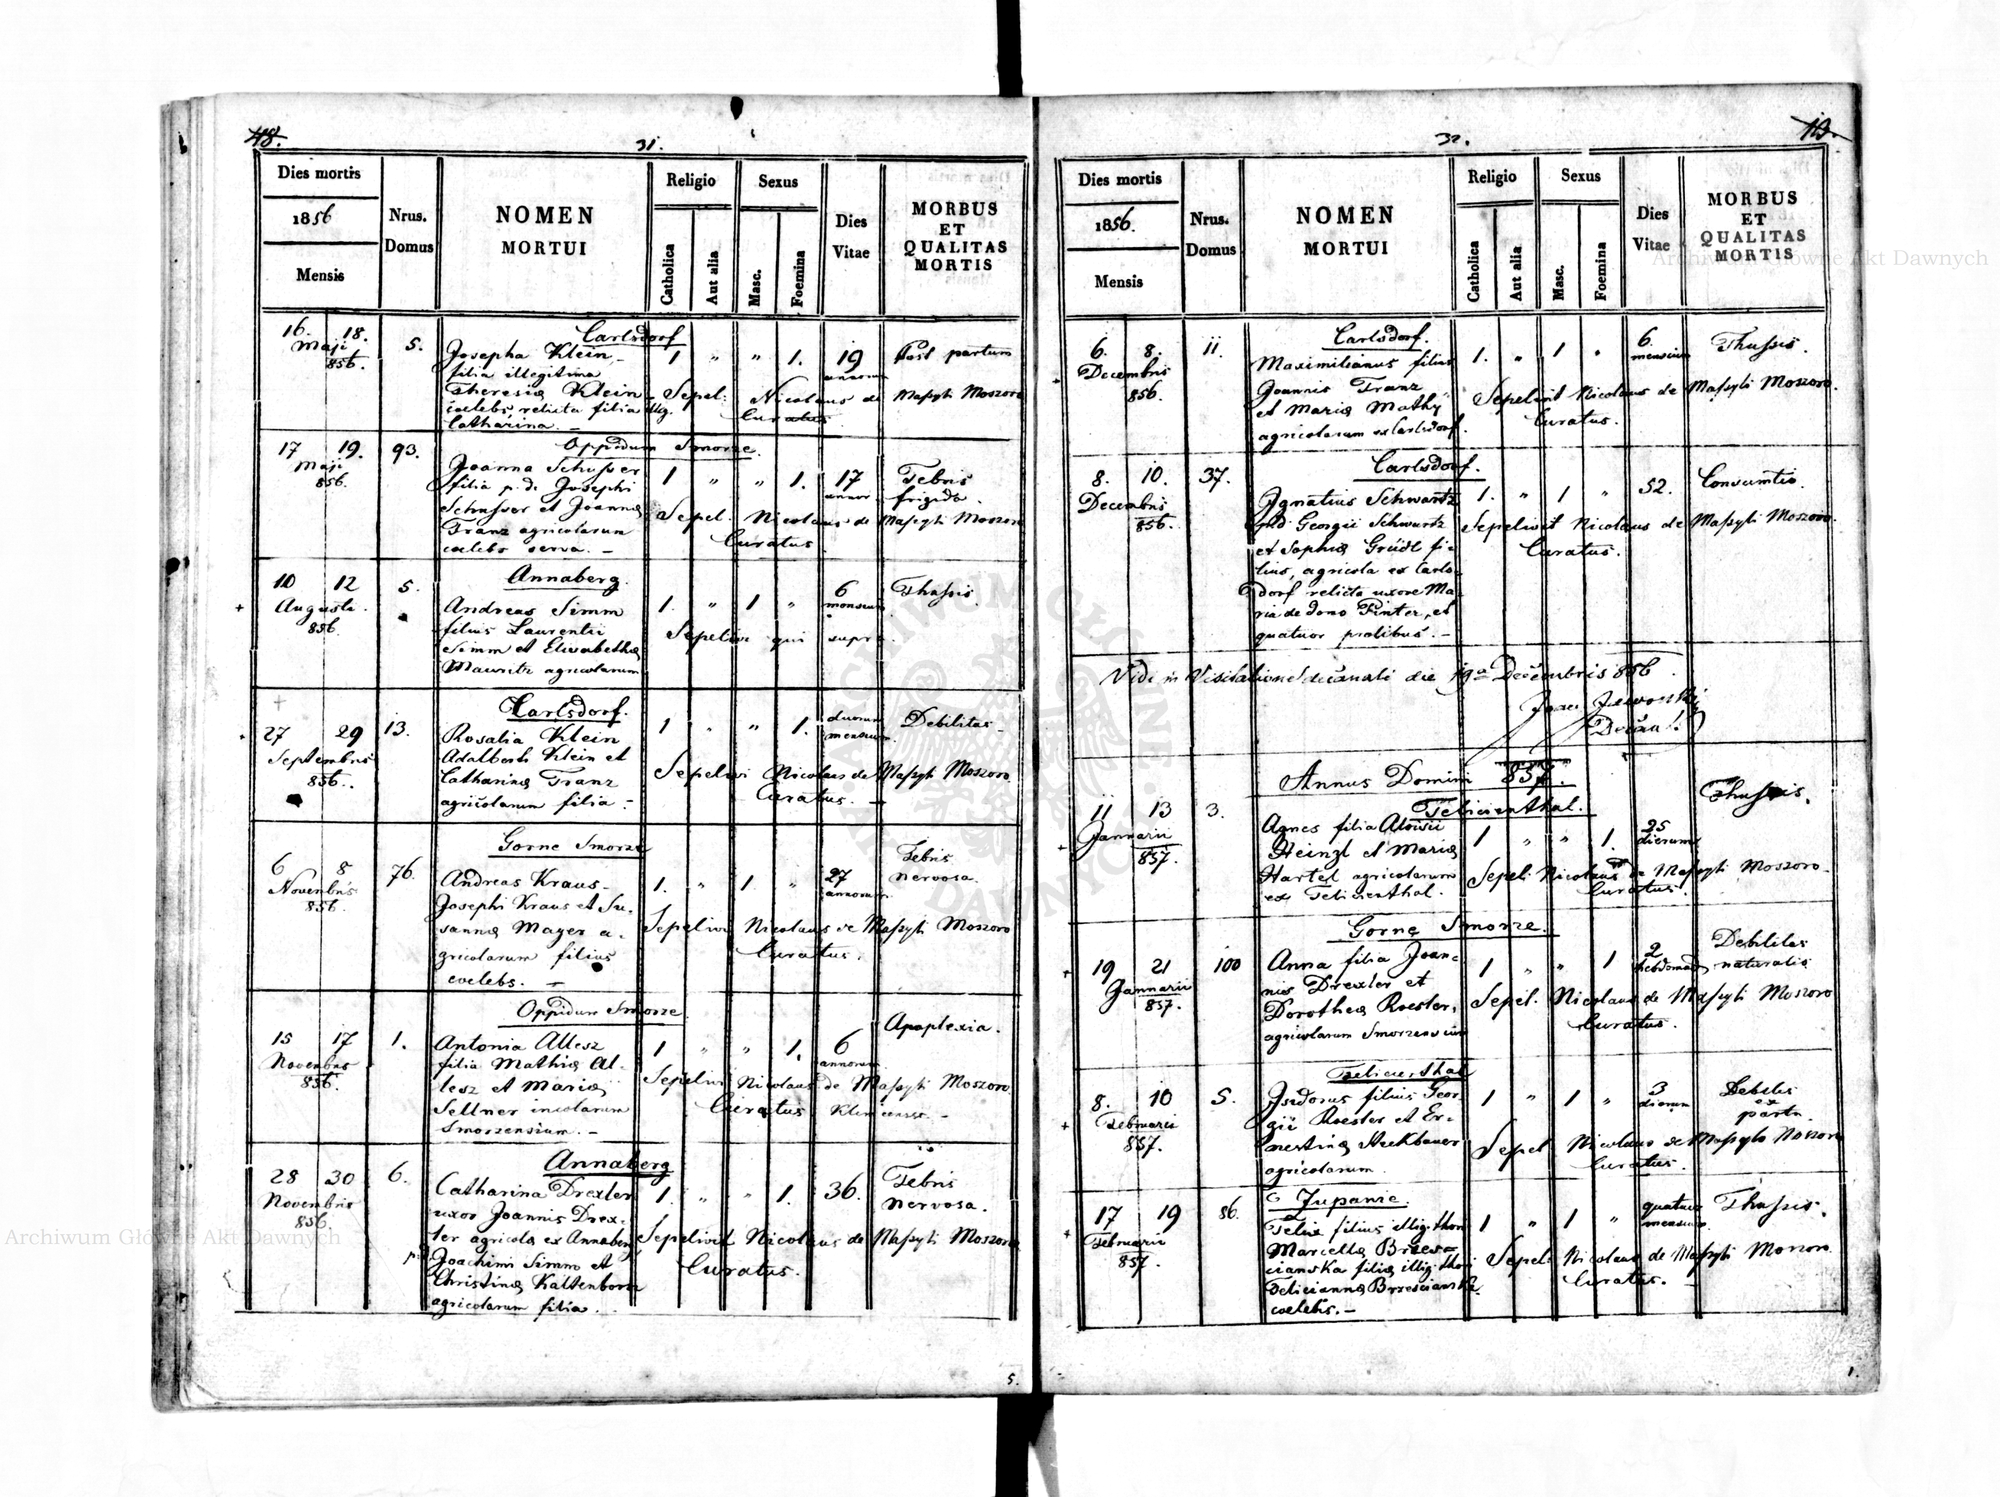 48.
31.
Dies mortis
1856
Mensis
Nrus. Domus
NOMEN
MORTUI
Religio
Catholica
Aut alia
Sexus
Masc.
Foemina
Dies
Vitae
MORBUS
ET
QUALITAS
MORTIS
Carlsdorf
16. 18. 5. Josepha Klein 1 " " 1. 19 Post partum
Maji 856. filia illegitima annorum
Theresiæ Klein Sepel: Nicolaus de Maßyli Moszoro
cœlebs, relicta filia illg. Curatus
Catharina. –
Oppidum Smorze.
17 19. 93. Joanna Schusser 1 " " 1. 17 Febris
Maji 856. filia p. d. Josephi annor frigida.
Schusser et Joannæ Sepel. Nicolaus de Maßyli Moszoro
Franz agricolarum Curatus
cœlebs serva. –
Annaberg.
10 12 5. Andreas Simm 1. " 1 " 6 Thassis
Augusti. 856. filius Laurentii mensium
Simm et Elisabethæ Sepelivi qui supra
Mauritz agricolarum
Carlsdorf.
27 29 13. Rosalia Klein 1 " " 1. duorum mensium. Debilitas
Septembris 856. Adalberti Klein et
Catharinæ Franz Sepelivi Nicolaus de Maßyli Moszoro
agricolarum filia. Curatus. –
Gorne Smorze
6 8 76. Andreas Kraus 1. " 1 " 27 Febris
Novembris 856. Josephi Kraus et Su- annorum nervosa.
sannæ Mayer a- Sepelivi Nicolaus de Maßyli Moszoro
gricolarum filius Curatus.
cœlebs. –
Oppidum Smorze
15 17 1. Antonia Allesz 1 " " 1. 6 Apoplexia.
Novembris 856. filia Mathiæ Al- annorum
lesz et Mariæ Sepelivi Nicolaus de Maßyli Moszoro
Sellner incolarum Curatus
Smorzensium. –
Annaberg
28 30 6. Catharina Drexler 1. " " 1. 36. Febris
Novembris 856. uxor Joannis Drex- nervosa.
ler agricolæ ex Annaberg Sepelivit Nicolaus de Maßyli Moszoro
p.d. Joachimi Simm et Curatus.
Christinæ Kaltenborn
agricolarum filia.
5.
32.
Dies mortis
1856.
Mensis
Nrus. Domus
NOMEN
MORTUI
Religio
Catholica
Aut alia
Sexus
Masc.
Foemina
Dies
Vitae
MORBUS
ET
QUALITAS
MORTIS
Carlsdorf.
6. 8. 11. Maximilianus filius 1. " 1 " 6. mensium Thassis.
Decembris 856. Joannis Franz Sepelivit Nicolaus de Maßyli Moszoro.
et Mariæ Mathy Curatus.
agricolarum ex Carlsdorf.
Carlsdorf.
8. 10. 37. Ignatius Schwartz 1. " 1 " 52. Consumtio.
Decembris 856. p.d Georgii Schwartz Sepelivit Nicolaus de Maßyli Moszoro.
et Sophiæ Gründl fi- Curatus.
lius, agricola ex Carls-
dorf relicta uxore Ma-
ria de domo Pinter, et
quatuor prolibus. –
Vidi in Visitatione decanali die 19a Decembris 856
Annus Domini 857.
Felicienthal.
11 13 3. Agnes filia Aloisii 1 " " 1. 25 dierum Thassis.
Januarii 857. Heinzl et Mariæ
Hartel agricolarum Sepeli Nicolaus de Maßyli Moszoro
ex Felicienthal. Curatus.
Gorne Smorze.
19 21 100 Anna filia Joan- 1 " " 1 2 hebdomad. Debilitas naturalis
Januarii 857. nis Drexler et
Dorotheæ Roester, Sepel. Nicolaus de Maßyli Moszoro
agricolarum Smorzensium Curatus.
Felicienthal
8. 10 5. Isidorus filius Geor- 1 " 1 " 3 dierum Debilis ex partu.
Februarii 857. gii Roester et Er-
nestinæ Heckbauer Sepel Nicolaus de Maßyli Moszoro
agricolarum. Curatus.
Zupanie.
17 19 86. Felix filius illig. thori 1 " 1 " quatuor mensium. Thassis.
Februarii 857. Marcellæ Brzes-
cianska filiæ illig. thori Sepel. Nicolaus de Maßyli Moszoro.
Felicianæ Brzescianska Curatus. –
cœlebis. –
1.
Archiwum Główne Akt Dawnych
Archiwum Główne Akt Dawnych
ARCHIWUM GŁÓWNE AKT DAWNYCH